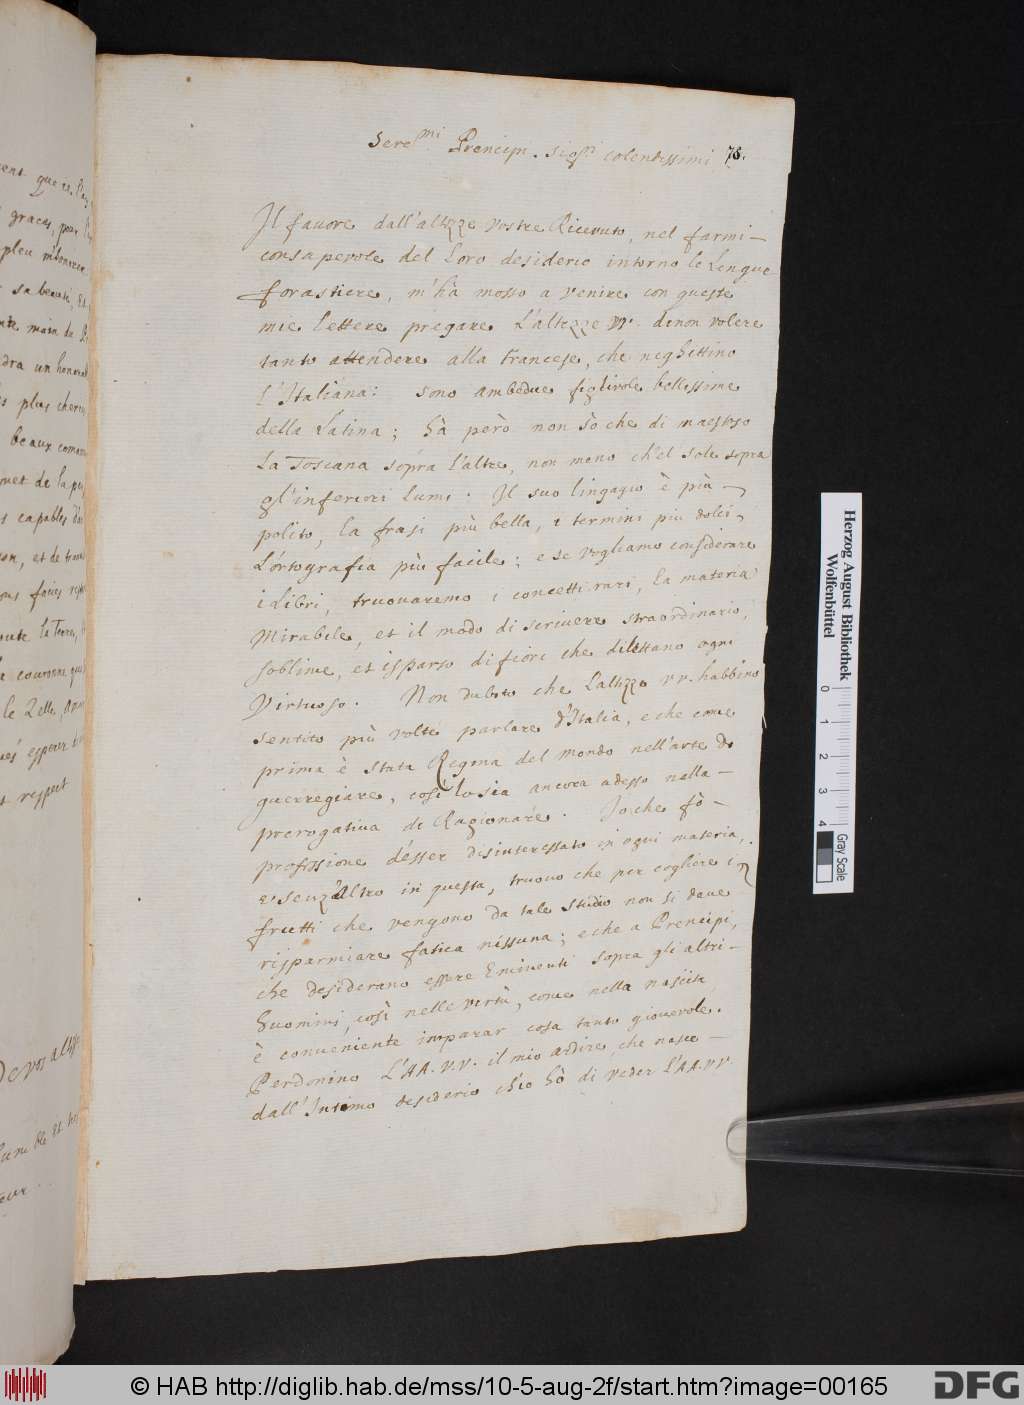 Sere^mi Prencipi. Sig^ri colendissimi 78.
Il fauore dall'altezze vostre Riceuuto, nel farmi
consapevole del loro desiderio intorno le lengue
forastiere, m'hà mosso a venire con queste
mie lettere pregare L'altezze VV. di non volere
tanto attendere alla Francese, che neghittino
l'Italiana: sono ambedue figliuole bellissime
della Latina; hà però non sò che di maestoso
La Toscana sopra l'altre, non meno ch'el sole sopra
gl'inferiori lumi. Il suo lingagio è più
polito, la frasi più bella, i termini piu dolci,
L'ortografia più facile; e se vogliamo considerare
i Libri, truouaremo i concetti rari, la materia
Mirabile, et il modo di scriuere straordinario,
soblime, et isparso di fiori che dilettano ogni
Virtuoso. Non dubito che L'altezze VV. habbino
sentito più volte parlare d'Italia, e che come
prima è stata Regina del mondo nell'arte di
guerregiare, così lo sia ancora adesso nella
prerogatiua di Ragionare. Io che fò
professione d'esser disinteressato in ogni materia,
e senz'Altro in questa, truouo che per cogliere i
frutti che vengono da tale studio non si deue
risparmiare fatica nissuna; e che a Prencipi,
che desiderano essere Eminenti sopra gli altri
huomini, così nelle virtù, come nella nascita,
è conueniente imparar cosa tanto gioueuole.
Perdonino L'AA.VV. il mio ardire, che nasce
dall'Intimo desiderio ch'io hò di veder L'AA.VV.
gracas, pour
sa beauté, Et
main du
un honorab
plus
beaux
de la
capables
, et de
faires
la Terre,
couronne que
le Zelle,
esperer
respect
De vos altesse
Et
Herzog August Bibliothek
Wolfenbüttel
0 1 2 3 4
Gray Scale
© HAB http://diglib.hab.de/mss/10-5-aug-2f/start.htm?image=00165
DFG